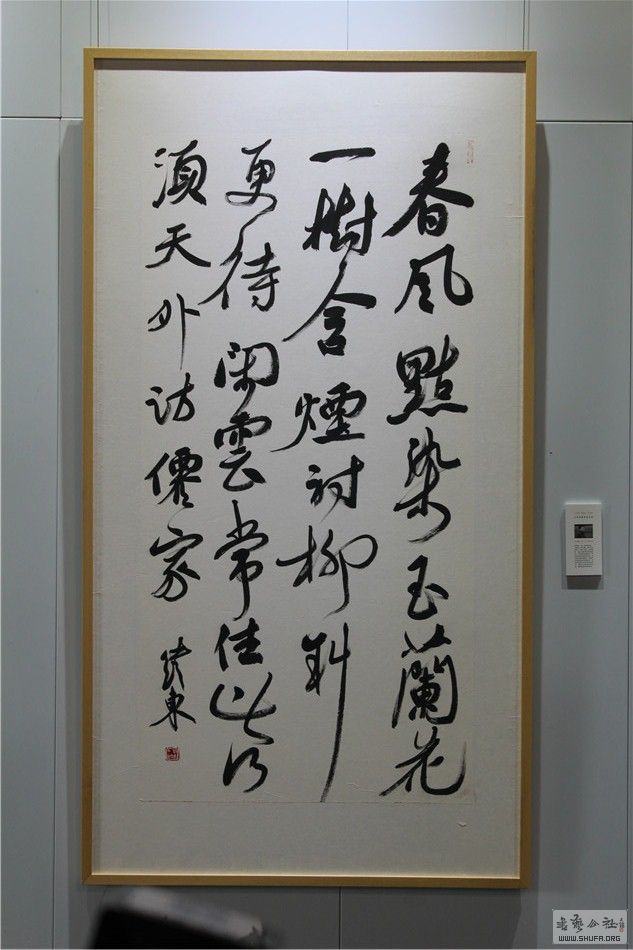 春風點染玉蘭花
一樹含煙衬柳斜
更待閑雲常住此何
須天外訪僊家
東
書藝公社
WWW.SHUFA.ORG